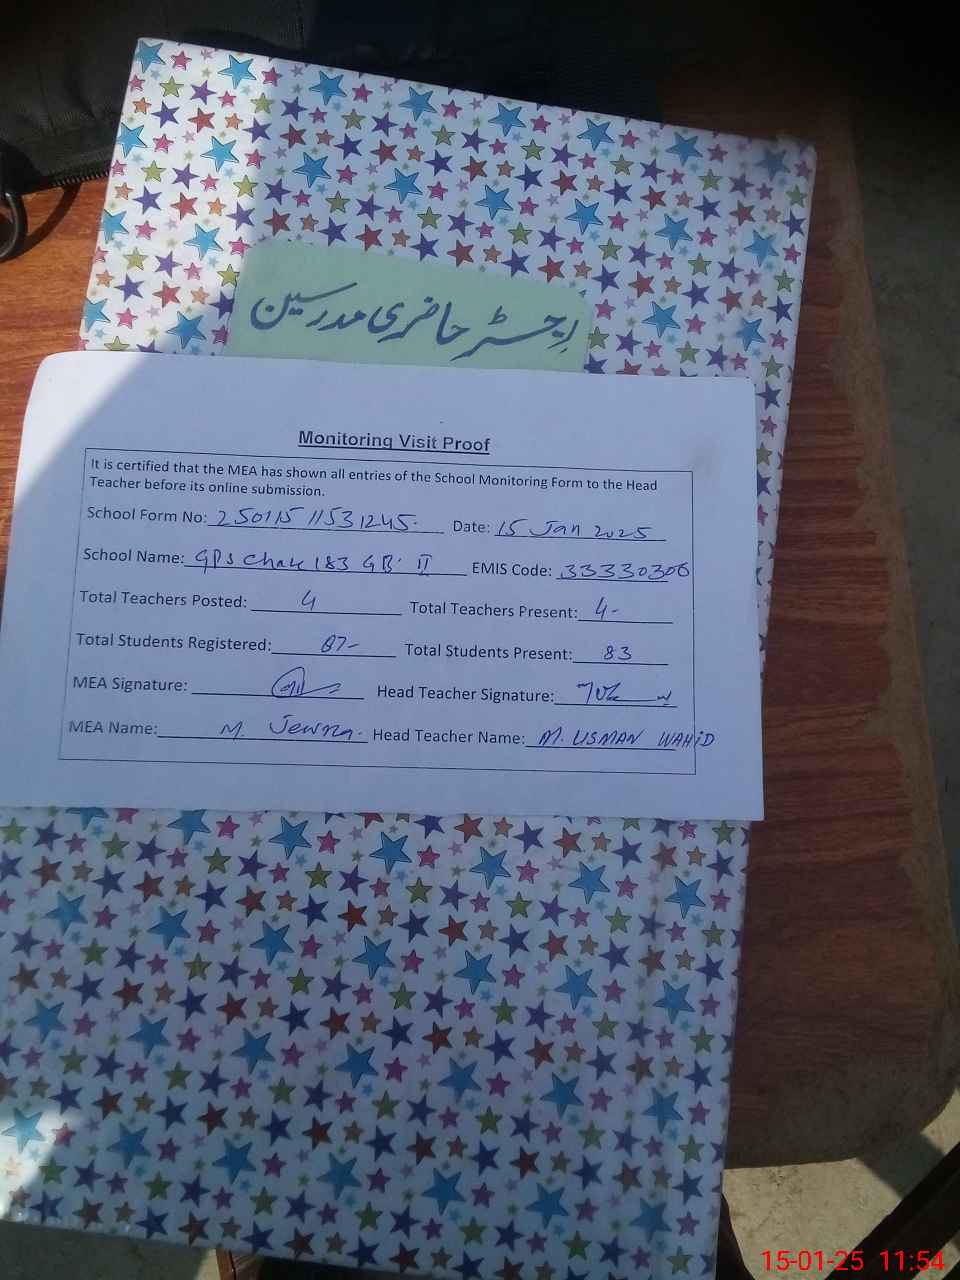 رجسٹر حاضری مدرسین
Monitoring Visit Proof
It is certified that the MEA has shown all entries of the School Monitoring Form to the Head
Teacher before its online submission.
School Form No: 250115 11531245. Date: 15 Jan 2025
School Name: GPS Chak 183 GB. II EMIS Code: 33330306
Total Teachers Posted: 4 Total Teachers Present: 4-
Total Students Registered: 87- Total Students Present: 83
MEA Signature: Head Teacher Signature:
MEA Name: M. Head Teacher Name: M. USMAN WAHiD
15-01-25 11:54